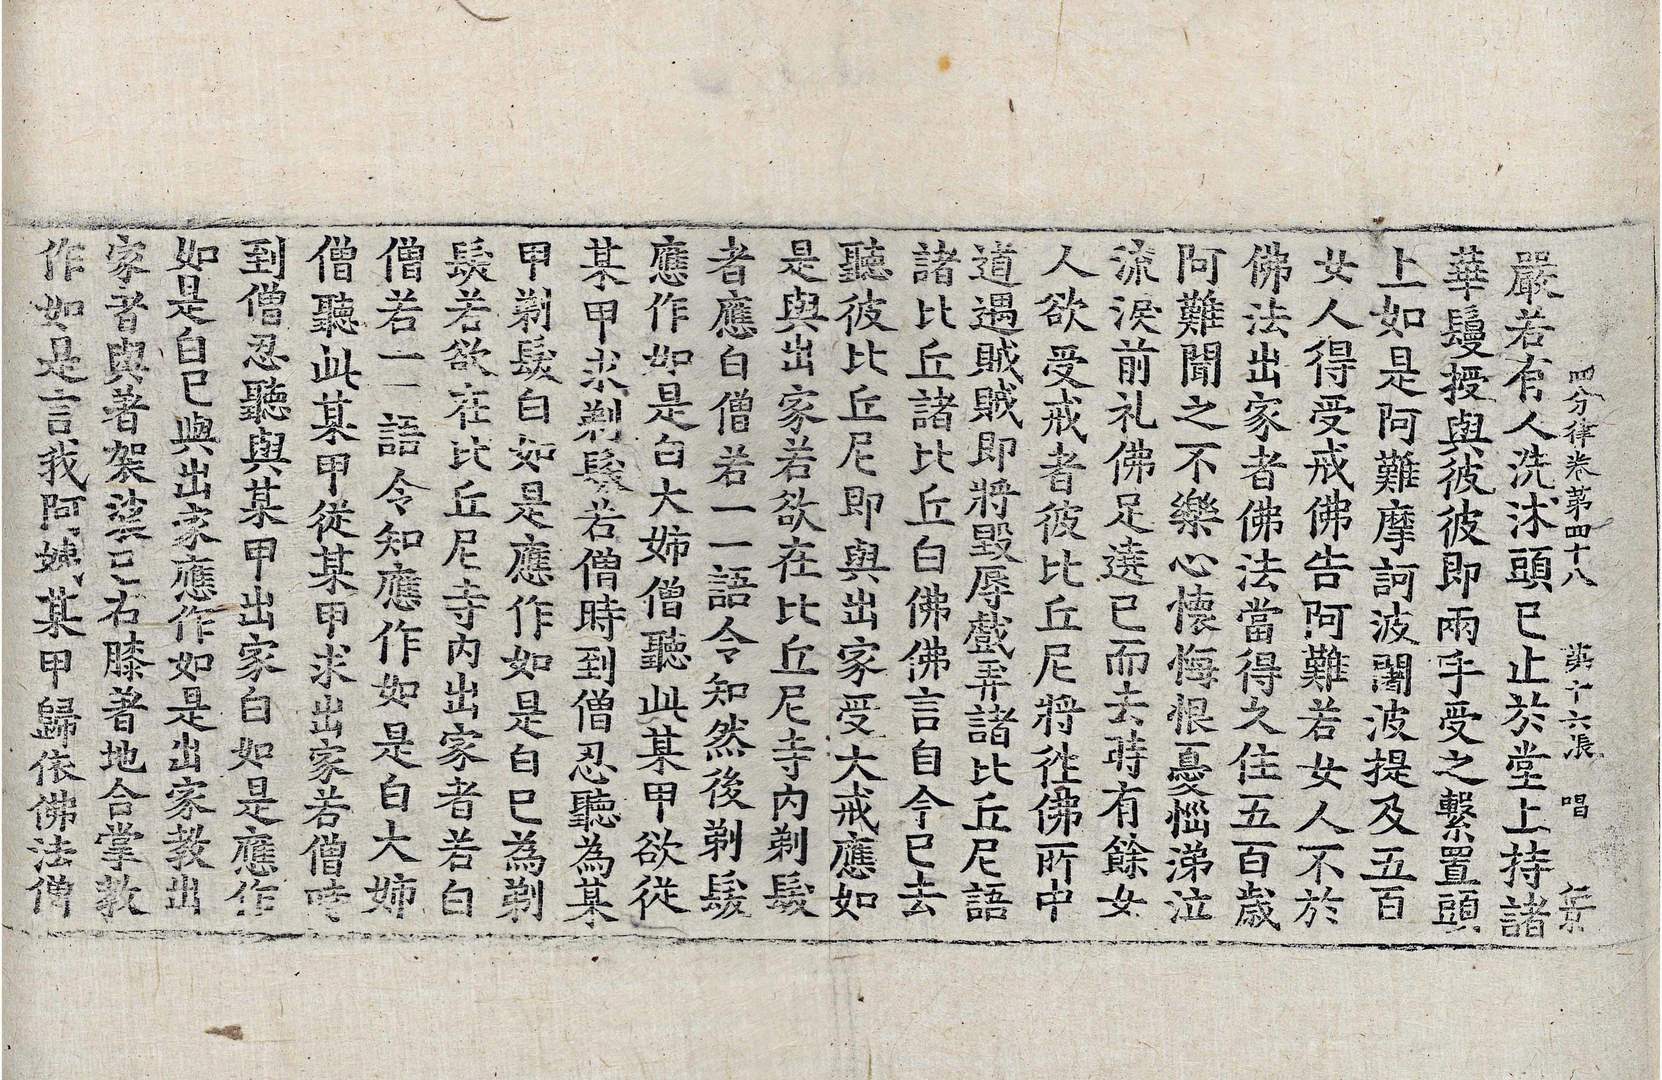 四分律卷第四十八 第十六張 唱
嚴若有人洗沐頭已止於堂上持諸
華鬘授與彼彼即兩手受之繫置頭
上如是阿難摩訶波闍波提及五百
女人得受戒佛告阿難若女人不於
佛法出家者佛法當得久住五百歲
阿難聞之不樂心懷悔恨憂惱涕泣
流淚前礼佛足遶已而去時有餘女
人欲受戒者彼比丘尼將徃佛所中
道遇賊賊即將毀辱戲弄諸比丘尼語
諸比丘諸比丘白佛佛言自今已去
聽彼比丘尼即與出家受大戒應如
是與出家若欲在比丘尼寺內剃髮
者應白僧若一一語令知然後剃髮
應作如是白大姊僧聽此某甲欲從
某甲求剃髮若僧時到僧忍聽為某
甲剃髮白如是應作如是白已為剃
髮若欲在比丘尼寺內出家者若白
僧若一一語令知應作如是白大姊
僧聽此某甲從某甲求出家若僧時
到僧忍聽與某甲出家白如是應作
如是白已與出家應作如是出家教出
家者與著袈裟已右膝著地合掌教
作如是言我阿姨某甲歸依佛法僧